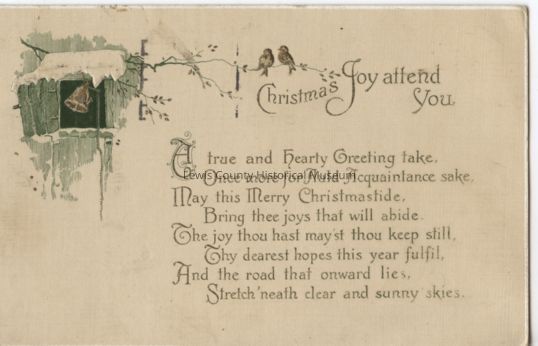 Christmas Joy attend
You
A true and Hearty Greeting take,
Lewis County Historical Museum
Once more for Auld Acquaintance sake,
May this Merry Christmastide,
Bring thee joys that will abide.
The joy thou hast may'st thou keep still,
Thy dearest hopes this year fulfil,
And the road that onward lies,
Stretch 'neath clear and sunny skies.